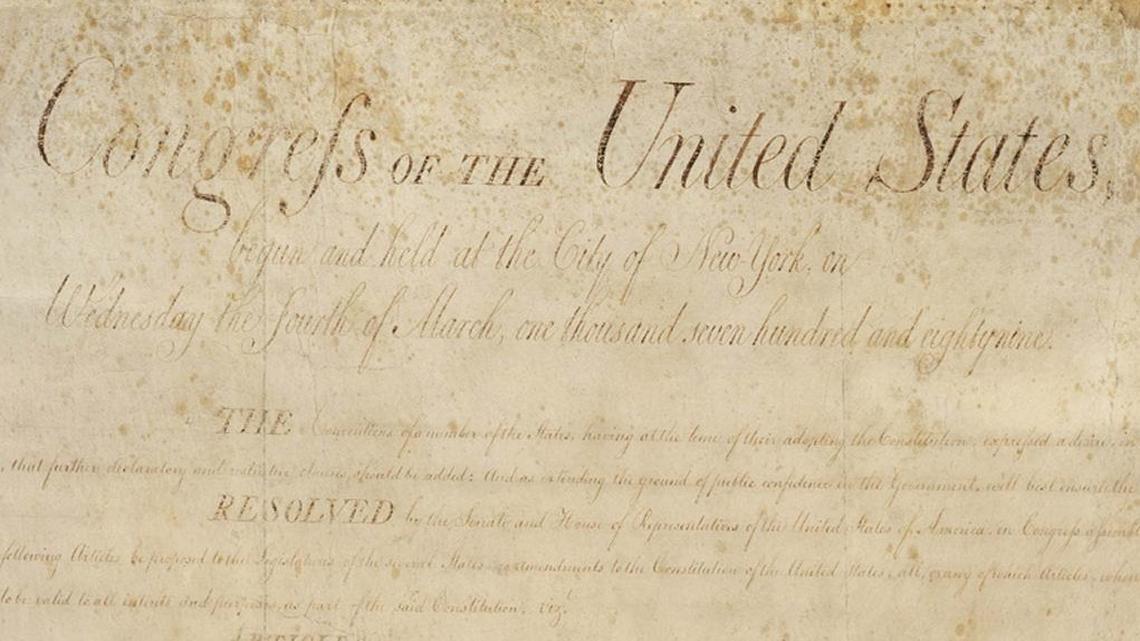 Congreſs OF THE United States,
begun and held at the City of New-York, on
Wednesday the fourth of March, one thousand seven hundred and eighty nine.
THE Conventions of a number of the States, having at the time of their adopting the Constitution, expressed a desire, in
, that further declaratory and restrictive clauses should be added: And as extending the ground of public confidence in the Government, will best ensure the
RESOLVED by the Senate and House of Representatives of the United States of America, in Congreſs aſsembl
following Articles be proposed to the Legislatures of the several States, as amendments to the Constitution of the United States, all, or any of which Articles, when
to be valid to all intents and purposes, as part of the said Constitution. viz.t
ARTICLE